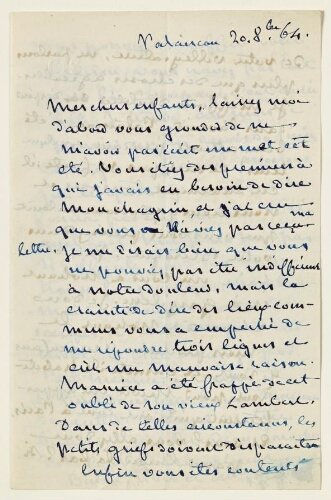 Palaiseau 20. 8bre 64.
Mes chers enfants, laissez moi
d'abord vous gronder de ne
m'avoir pas écrit un mot cet
été. Vous étiez des premiers à
qui j'avais eu besoin de dire
mon chagrin, et j'ai cru
que vous n'aviez pas reçu ma
lettre. Je me disais bien que vous
ne pouviez pas être indifférents
à notre douleur, mais la
crainte de dire des lieux-com-
muns vous a empêché de
me répondre trois lignes et
c'est une mauvaise raison.
Maurice a été frappé de cet
oubli de son vieux Lambert.
Dans de telles circonstances, les
petits griefs doivent disparaître
Enfin vous êtes contents